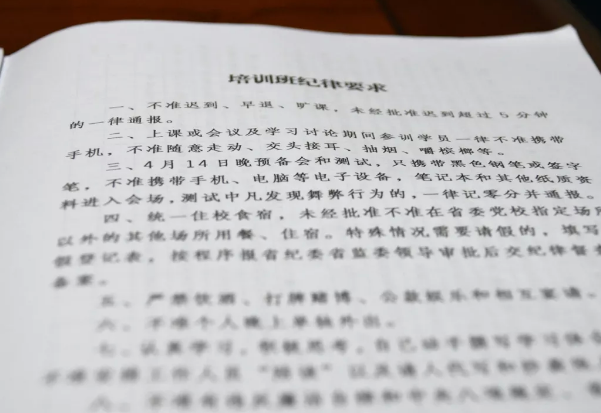 培训班纪律要求
一、不准迟到、早退、旷课，未经批准迟到超过5分钟
的一律通报。
二、上课或会议及学习讨论期间参训学员一律不准携带
手机，不准随意走动、交头接耳、抽烟、嚼槟榔等。
三、4月14日晚预备会和测试，只携带黑色钢笔或签字
笔，不准携带手机、电脑等电子设备，笔记本和其他纸质资
料进入会场，测试中凡发现舞弊行为的，一律记零分并通报。
四、统一住校食宿，未经批准不准在省委党校指定场所
以外的其他场所用餐、住宿。特殊情况需要请假的，填写
假登记表，按程序报省纪委省监委领导审批后交纪律督
备案。
五、严禁饮酒、打牌赌博、公款娱乐和相互宴请。
六、不准个人晚上单独外出。
七、认真学习，积极思考，自己动手撰写学习